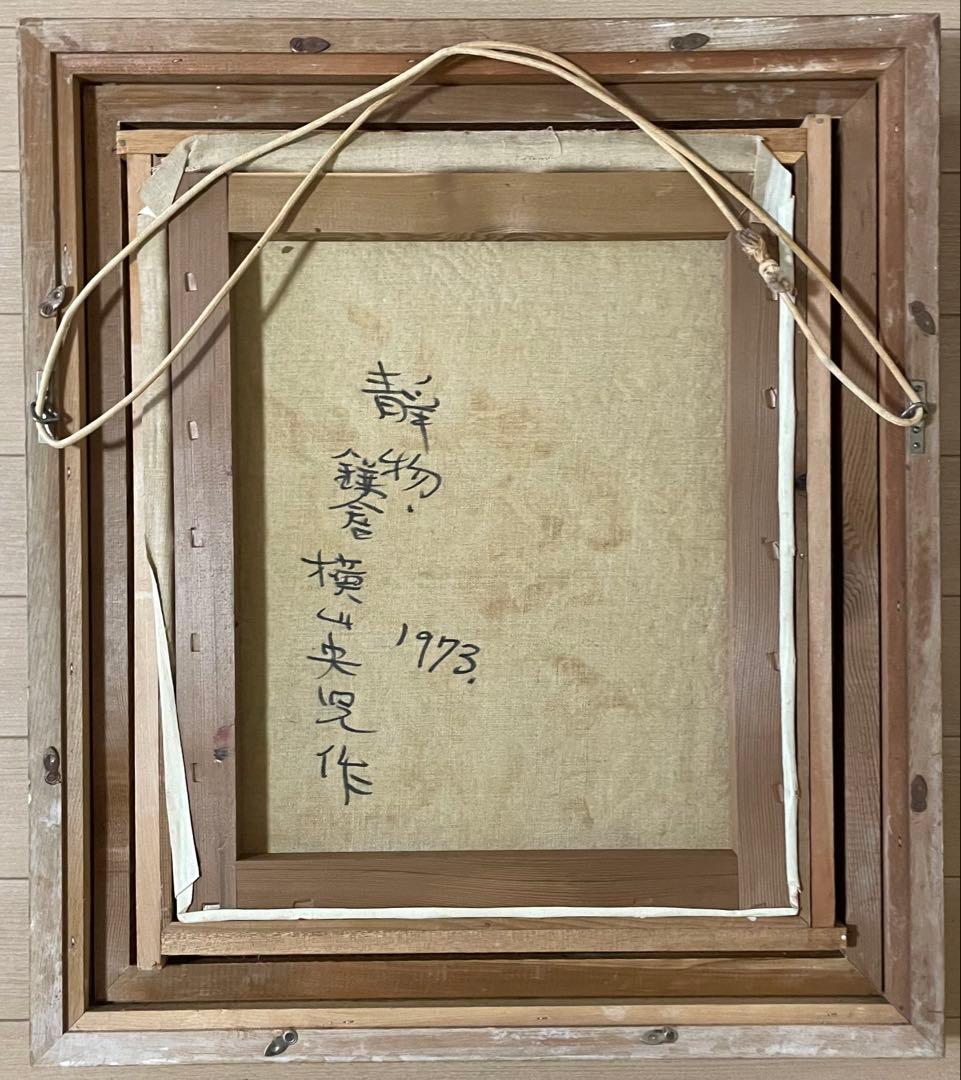 静物.
鎌倉 横山央児作
1973.